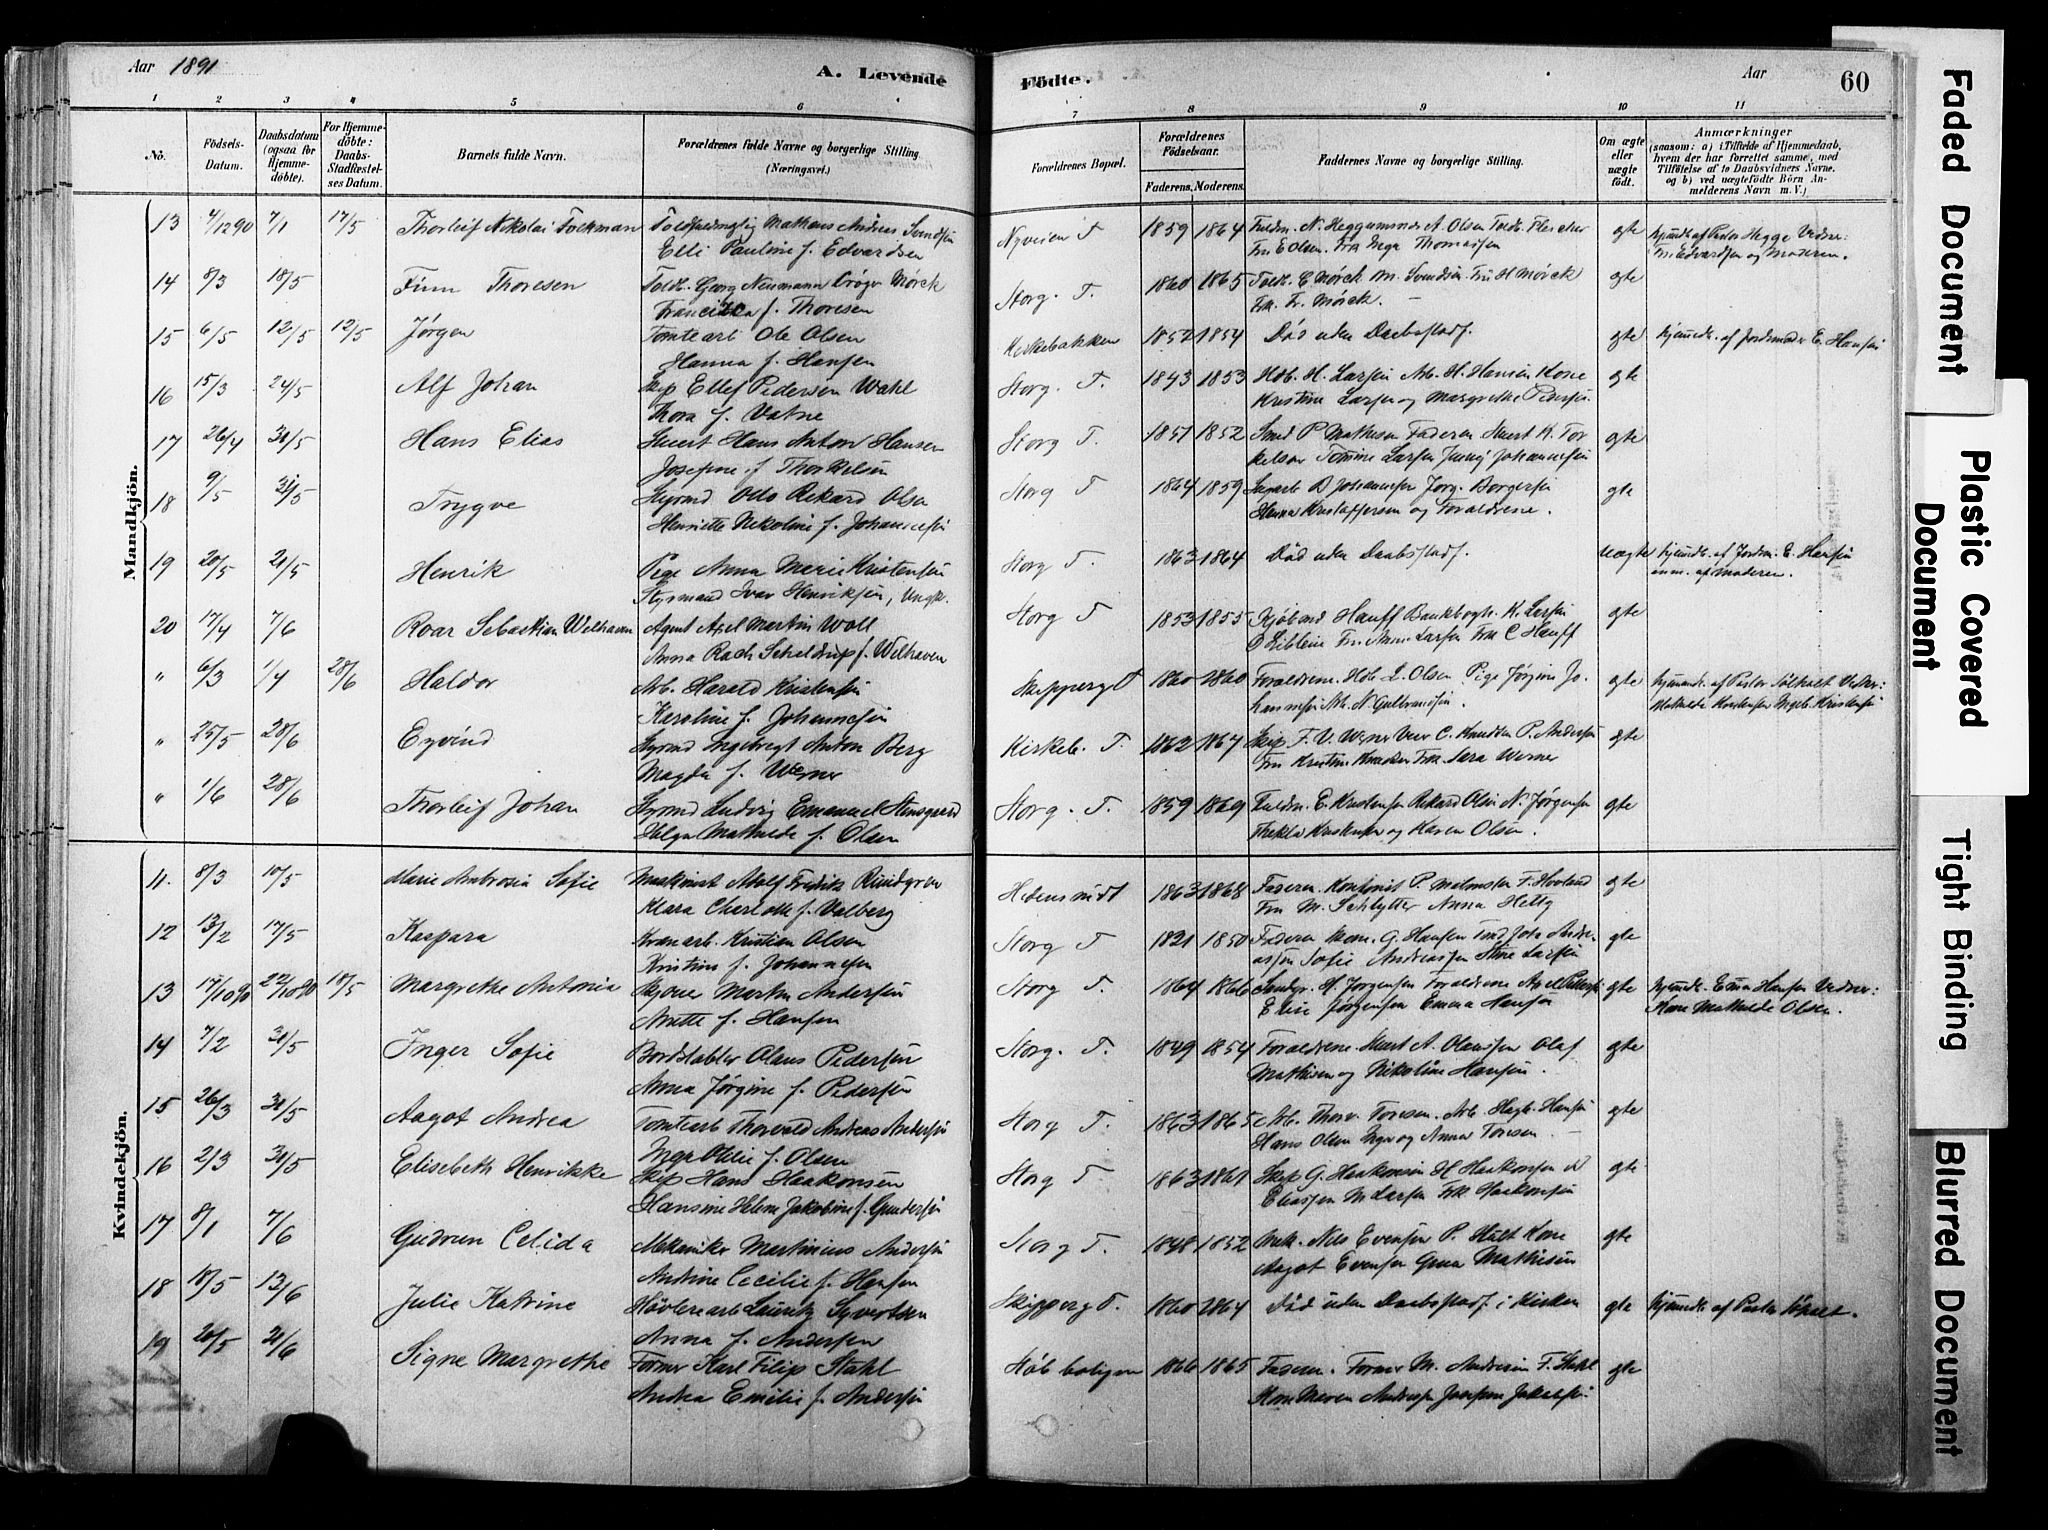 Aar 1891
A. Levende
Födte.
Aar
60
1 2 3 4 5 6 7 8 9 10 11
No.
Födsels-Datum.
Daabsdatum (ogsaa for Hjemmedöbte).
For Hjemmedöbte: Daabs-Stadfæstelses Datum.
Barnets fulde Navn.
Forældrenes fulde Navne og borgerlige Stilling (Næringsvei.)
Forældrenes Bopæl.
Forældrenes Födselsaar.
Faderens. Moderens.
Faddernes Navne og borgerlige Stilling.
Om ægte eller uægte födt.
Anmærkninger (saasom: a) i Tilfælde af Hjemmedaab, hvem der har forrettet samme, med Tilföielse af to Daabsvidners Navne, og b) ved uægtefödte Börn Anmelderens Navn m. V.)
Mandkjön.
13 4/12 90 7/1 17/5 Thorleif Nikolai Fockman
Elli Pauline f. Edvardsen
Nyveien T 1859 1864
Fru E Olsen. Frk Inga Thomassen
gte
Fru Edvardsen og Moderen.
14 8/3 18/5 Finn Thoresen Toldb. Georg Neumann Mørck
Franciska f. Thoresen
Storg. T. 1860 1865 Toldb. E Mørck M. Svendsen Fru H Mørck
Frk. Fr. Mørck. —
gte
15 6/5 12/5 12/5 Jørgen Tomtearb Ole Olsen
Hanna f. Hansen
Kirkebakken 1852 1854 Død uden Daabsstadf. gte hjemmedb. af Jordemoder E. Hansen
16 15/3 24/5 Alf Johan Skip Ellef Pedersen Wahl
Thora f. Vatne
Storg. T. 1843 1853 Høb. H. Larsen Arb. H. Hansen Kone
Kristine Larsen og Margrethe Pedersen.
gte
17 26/4 31/5 Hans Elias Hans Anton Hansen
Josefine f. Thorkelsen
Storg T. 1851 1852 Smed P Mathisen Faderen K. Tor
kelsen Tomine Larsen Jenny Johannesen
gte
18 9/5 31/5 Trygve Styrmd Otto Rikard Olsen
Henriette Nikoline f. Johannesen
Storg T 1864 1859 B Johannesen Jorg. Borgersen
Hanna Kristoffersen og Forældrene.
gte
19 20/5 21/5 Henrik Pige Anna Marie Kristensen
Styrmand Ivar Henriksen, Ungk.
Storg T. 1863 1864 Død uden Daabsstadf. uægte hjemmedb. af Jordm. E. Hansen
anm. af Moderen.
20 17/4 7/6 Roar Sebastian Welhaven Agent Axel Martin Woll
Anna Rach Scheldrup f. Welhaven
Storg T 1853 1855 Kjøbmd Hauff Bankbogh. K. Larsen
Fru Anna Larsen Frk C Hauff
gte
" 6/3 1/4 28/6 Haldor Arb. Harald Kristensen
Karoline f. Johannesen
Skipperg T 1860 1860 Forældrene. Høb L. Olsen Pige Jørgine Jo
hannesen Arb. N. Gulbrandsen.
gte
" 25/5 28/6 Eyvind Styrmd Ingebregt Anton Berg
Magda f. Werner
Kirkeb. T. 1862 1864 Skip F. V. Werner C. Knudsen P. Andersen
Fru Kristine Knudsen Frk. Sara Werner
ægte
" 1/6 28/6 Thorleif Johan Styrmd Ludvig Emanuel Stensgaard
Helga Mathilde f. Olsen
Storg. T. 1859 1869 E. Kristensen Rikard Olsen N. Jørgensen
Thekla Kristensen og Karen Olsen.
gte
Kvindekjön.
11. 8/3 10/5 Marie Ambrosia Sofie Maskinist Adolf Fredrik Rundgren
Klara Charlotte f. Valberg
1863 1868 Faderen. Kontorist P. Malmsten F. Hovland
Fru M. Schlytter Anna Helby
gte
12 13/2 17/5 Kaspara Kranarb. Kristian Olsen
Kristine f. Johannesen
Storg T. 1821 1850 Faderen G. Hansen Joh. Andre-
assen Sofie Andreassen Stine Larsen
gte
13 17/10 90 22/10 90 18/5 Margrethe Antonia Martin Andersen
Anette f. Hansen
Storg T. 1864 1866 H. Jørgensen Forældrene Axel Pettersen
Elise Jørgensen Emma Hansen
gte hjemmedb. Emma Hansen Vidner:
Kone Mathilde Olsen.
14 7/2 31/5 Inger Sofie Bordstabler Olaus Pedersen
Anna Jørgine f. Pedersen
Storg. T. 1849 1854 Forældrene. A. Olaussen Olaf
Mathisen og Nikoline Hansen.
gte
15 26/3 31/5 Aagot Andrea Tomtearb Thorvald Andreas Andersen
Inga Otilie f. Olsen
Storg T. 1863 1865 Arb. Thorv. Toresen. Arb. Hagb. Hansen
Hans Olsen Inga og Anna Toresen —
gte
16 2/3 31/5 Elisebeth Henrikke Skip Hans Haakonsen
Hansine Helene Jakobine f. Gundersen
Storg T 1863 1861 Skip G. Haakonsen H Haakonsen
Eliassen M Larsen Frk Haakonsen
gte
17 8/1 7/6 Gudrun Celida Mekaniker Martinius Andersen
Andrine Cecilie f. Hansen
Storg T. 1848 1852 Mek. Nils Evensen P. Hult Kone
Aagot Evensen Mathisen
gte
18 18/5 13/6 Julie Katrine Høvlerearb Lauritz Syvertsen
Anna f. Andersen
Skipperg T. 1860 1864 Død uden Daabsstadf. i Kirken gte hjemmedb af Pastor
19 20/5 21/6 Signe Margrethe Former Karl Filip Stahl
Andrea Emilie f. Andersen
Støb boligen 1866 1865 Faderen. Former M. Andresen F. Stahl
Kone Maren Andresen Josefine Jakobsen
gte
Faded Document
Plastic Covered Document
Tight Binding
Blurred Document